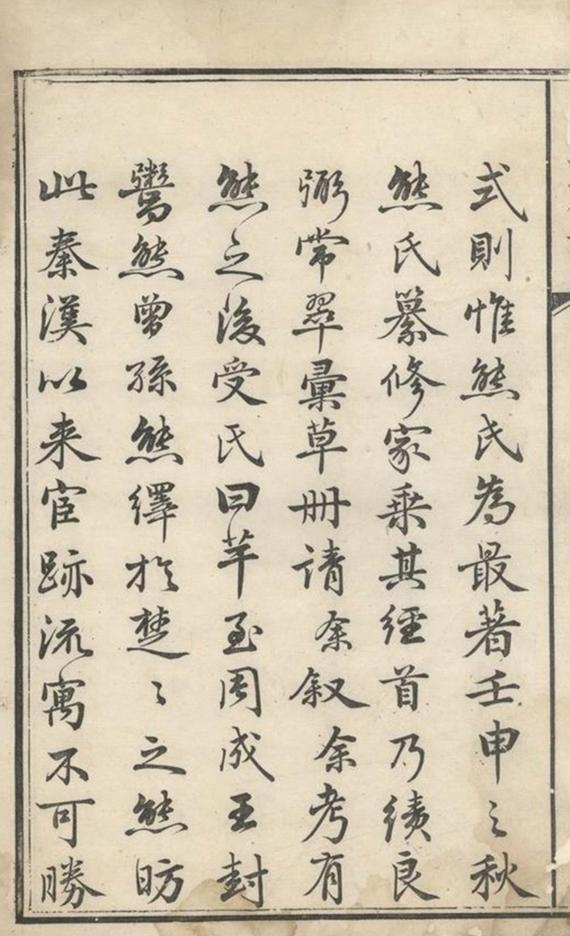 式則惟熊氏為最著壬申之秋
熊氏纂修家乘其經首乃績良
弼常翠彙草冊請余叙余考有
熊之後受氏曰芊至周成王封
鬻熊曾孫熊繹於楚〻之熊昉
此秦漢以来宦跡流寓不可勝